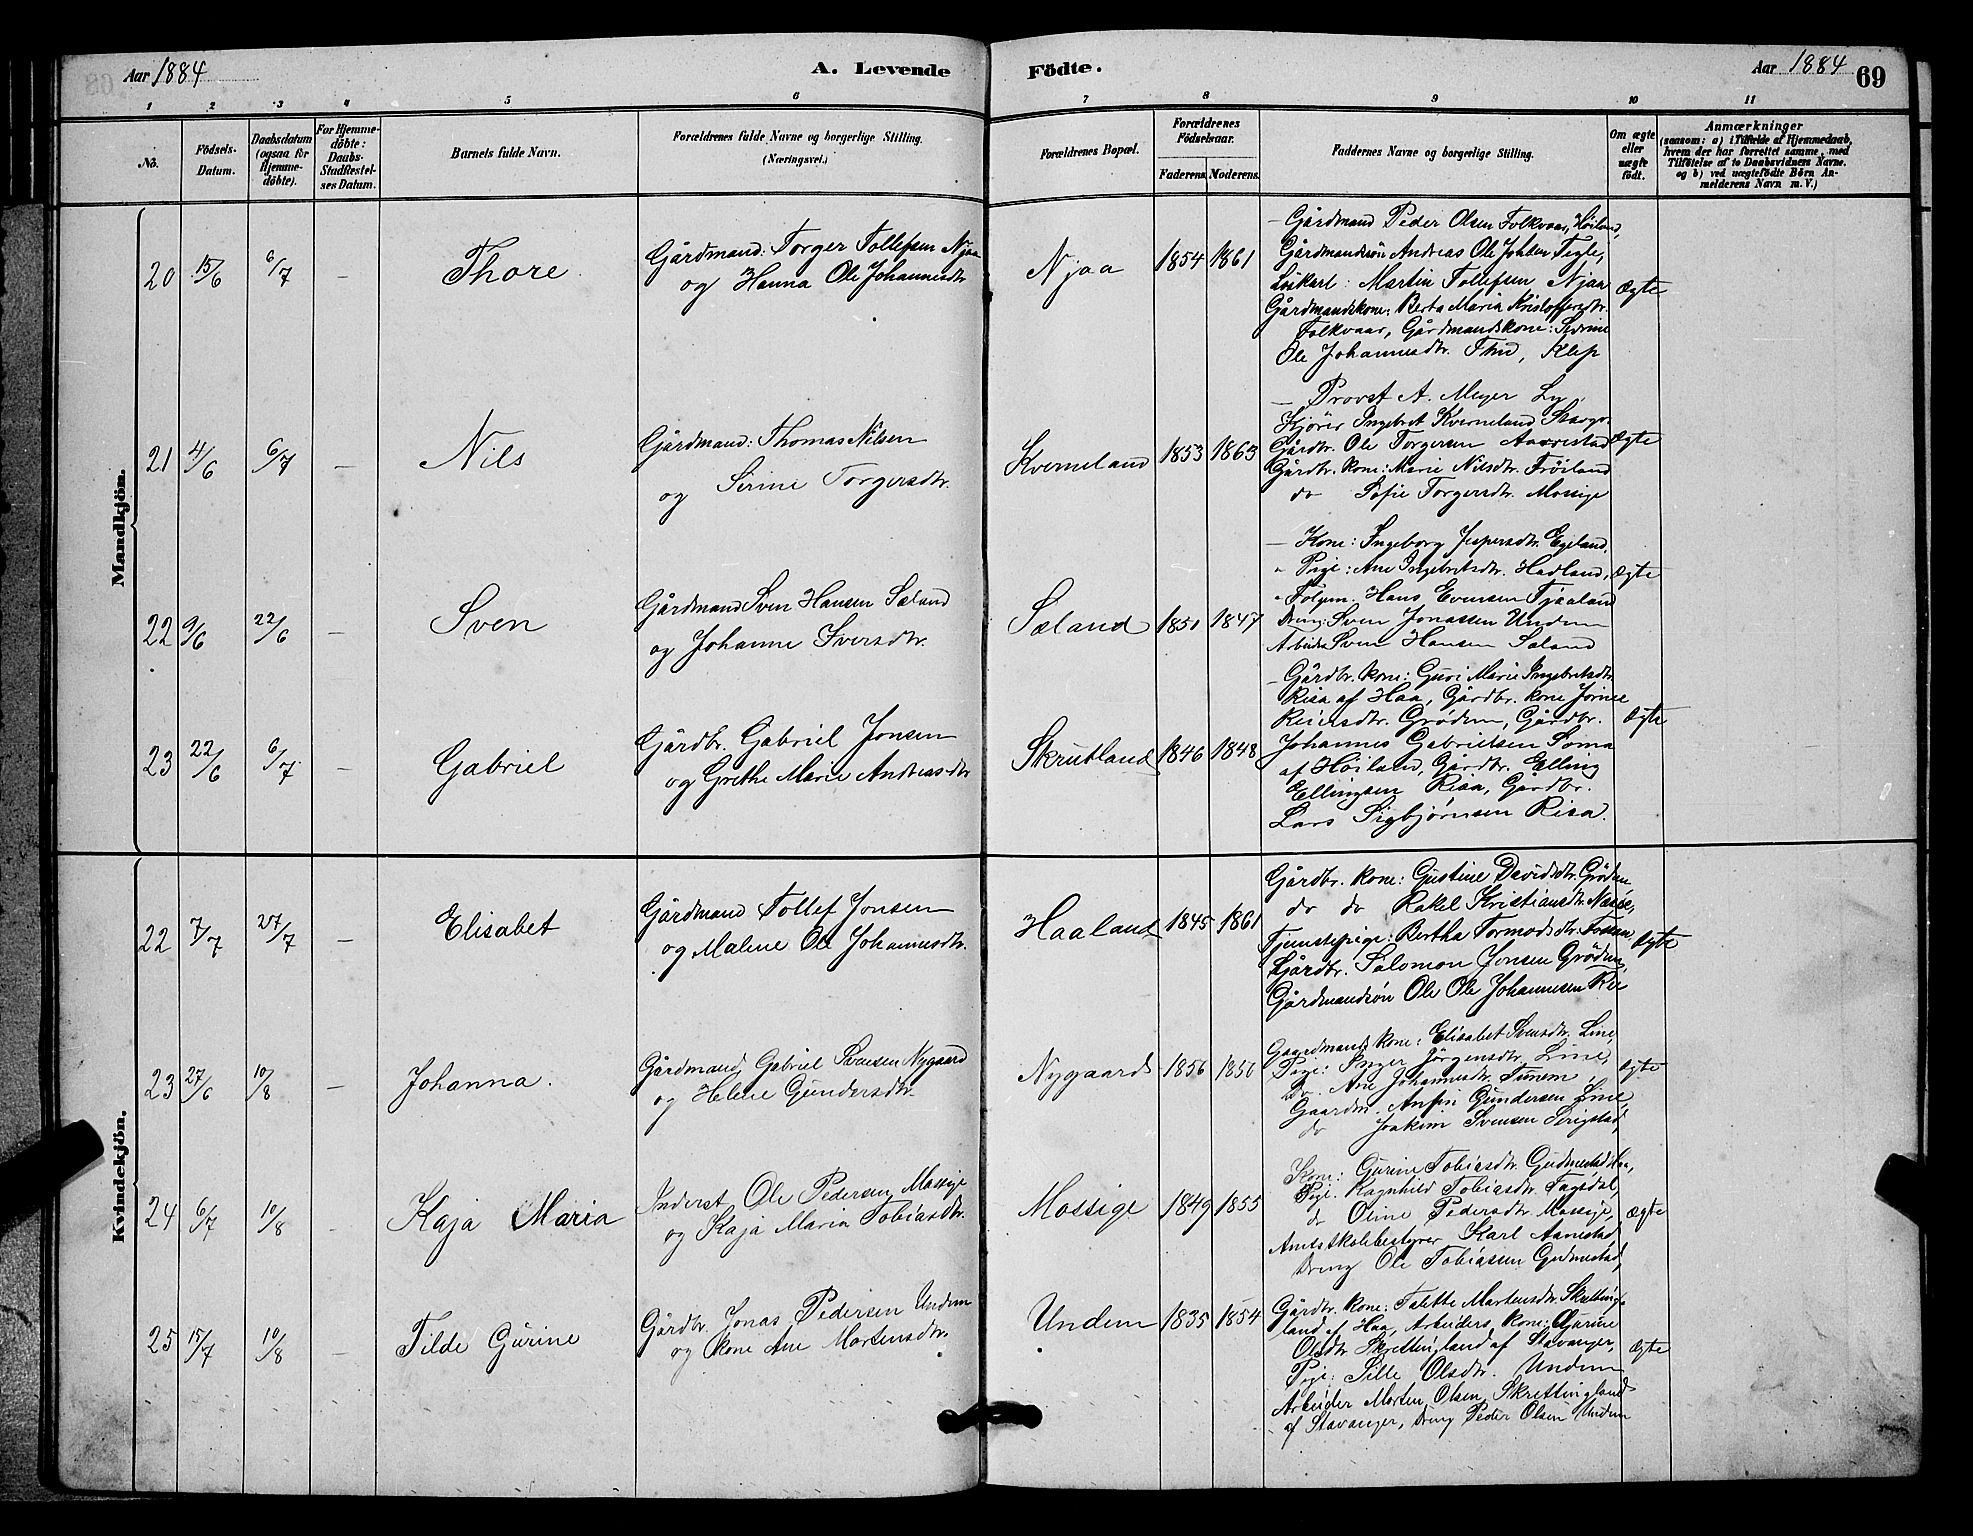 Aar 1884
A. Levende
Födte.
Aar 1884
69
1 2 3 4 5 6 7 8 9 10 11
No.
Födsels-
Datum.
Daabsdatum
(ogsaa for
Hjemme-
döbte).
For Hjemme-
döbte:
Daabs-
Stadfæstel-
ses Datum.
Barnets fulde Navn.
Forældrenes fulde Navne og borgerlige Stilling.
(Næringsvei.)
Forældrenes Bopæl.
Forældrenes
Födselsaar.
Faderens. Moderens.
Faddernes Navne og borgerlige Stilling.
Om ægte
eller
uægte
födt.
Anmærkninger
(saasom: a) i Tilfælde af Hjemmedaab,
hvem der har forrettet samme, med
Tilföielse af to Daabsvidners Navne.
og b) ved uægtefödte Börn An-
melderens Navn m. V.)
Mandkjön.
20 15/6 6/7 - Thore.
Gårdmand: Torger Tollefsen Njaa
og Hanna Ole Johannesdtr
Njaa 1854 1861
- Gårdmand Peder Olsen Folkvaar, Höiland,
Gårdmandsön Andreas Ole Johsen Tigle,
Löskarl: Martin Tollefsen Njaa
Gårdmandskone: Berta Maria Kristoffersdtr.
Folkvaar, Gårdmandskone: Serine
Ole Johannesdtr. Thu, Klep
Ægte
21 4/6 6/7 - Nils
Gårdmand: Thomas Nilsen
og Serine Torgersdtr.
Kverneland 1853 1863
- Provst A. Meyer Ly,
Ingebret Kverneland
Gårdbr. Ole Torgersen Aarrestad
Gårdbr. kone: Marie Nilsdtr. Fröiland
do Sofie Torgersdtr. Mossige
Ægte
22 9/6 22/6 - Sven
Gårdmand Sven Hansen Sæland
og Johanne Iversdtr.
Sæland 1851 1847
- Kone: Ingeborg Jespersdtr. Egeland,
" Pige: Ane Ingebretsdtr. Hadland,
" Folgem. Hans Evensen Tjaaland
Dreng: Sven Jonassen Undem
Arbeider Sven Hansen Sæland
Ægte
23 22/6 6/7 - Gabriel
Gårdbr. Gabriel Jonsen
og Grethe Marie Andreasdtr
Skrutland 1846 1848
- Gårdbr. kone: Guri Marie Ingebretsdtr.
Risa af Haa, Gårdbr. kone Jorine
Reiersdtr. Grödem, Gårdbr.
Johannes Gabrielsen Soma
af Höiland, Gårdbr. Elling
Ellingsen Risa, Gårdbr.
Lars Sigbjørnsen Risa.
Ægte
Kvindekjön.
22 7/7 27/7 - Elisabet
Gårdmand Tollef Jonsen
og Malene Ole Johannesdtr.
Haaland 1845 1861
Gårdbr. kone: Gustine Davidsdtr. Grödem
do do Rakel Kristiansdtr.
Tjenstepige: Bertha Tormodsdtr.
Gårdbr. Salomon Jonsen Grödem,
Gårdmandsön Ole Ole Johannesen
Ægte
23 27/6 10/8 - Johanna.
Gårdmand, Gabriel Svensen Nygaard
og Helene Gundersdtr.
Nygaard 1856 1850
Gaardmands kone: Elisabet Svensdtr. Line,
Pige: Inger Jörgensdtr. Line,
Do. Ane Johannesdtr. Tunem,
Gaardm. Anfin Gundersen Line,
do Joakim Svensen Serigstad,
Ægte
24 6/7 10/8 - Kaja Maria
Inderst, Ole Pedersen Mossige
og Kaja Maria Tobiasdtr.
Mossige 1849 1855
Kone: Gurine Tobiasdtr.
Pige. Ragnhild Tobiasdtr.
do Oline Pedersdtr. Mossige,
Amtsskolebestyrer Karl Aanestad
Dreng Ole Tobiasen Gudmestad,
ægte
25 15/7 10/8 - Tilde Gurine
Gårdbr. Jonas Pedersen Undem
og kone Ane Martensdtr.
Undem 1835 1854
Gårdbr. kone: Talette Martensdtr. Skretting-
land af Haa, Arbeiders kone: Gurine
Olsdtr. Skrettingland af Stavanger,
Pige: Sille Olsdtr. Undem
Arbeider Morten Olsen Skrettingland
af Stavanger, Dreng Peder Olsen Undem
ægte